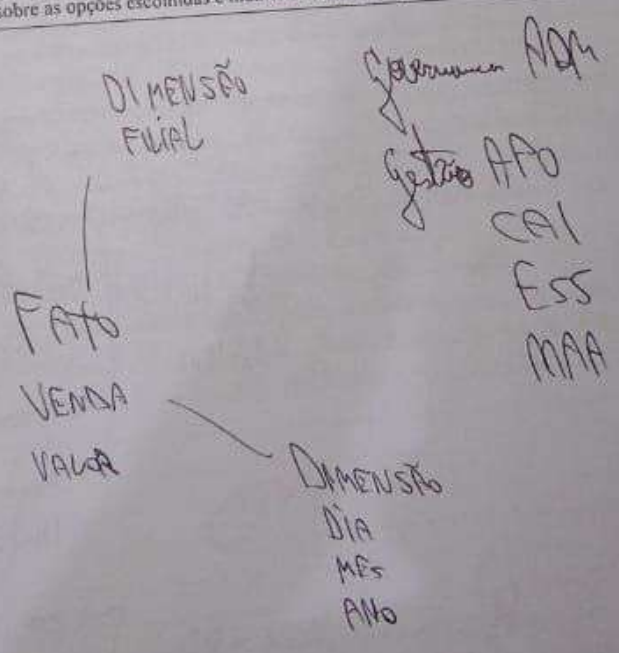 sobre as opções escolhidas e
DIMENSÃO
FILIAL
Governança ADM
Gestão APO
CAI
ESS
MAA
FATO
VENDA
VALOR
DIMENSÃO
DIA
MÊS
ANO